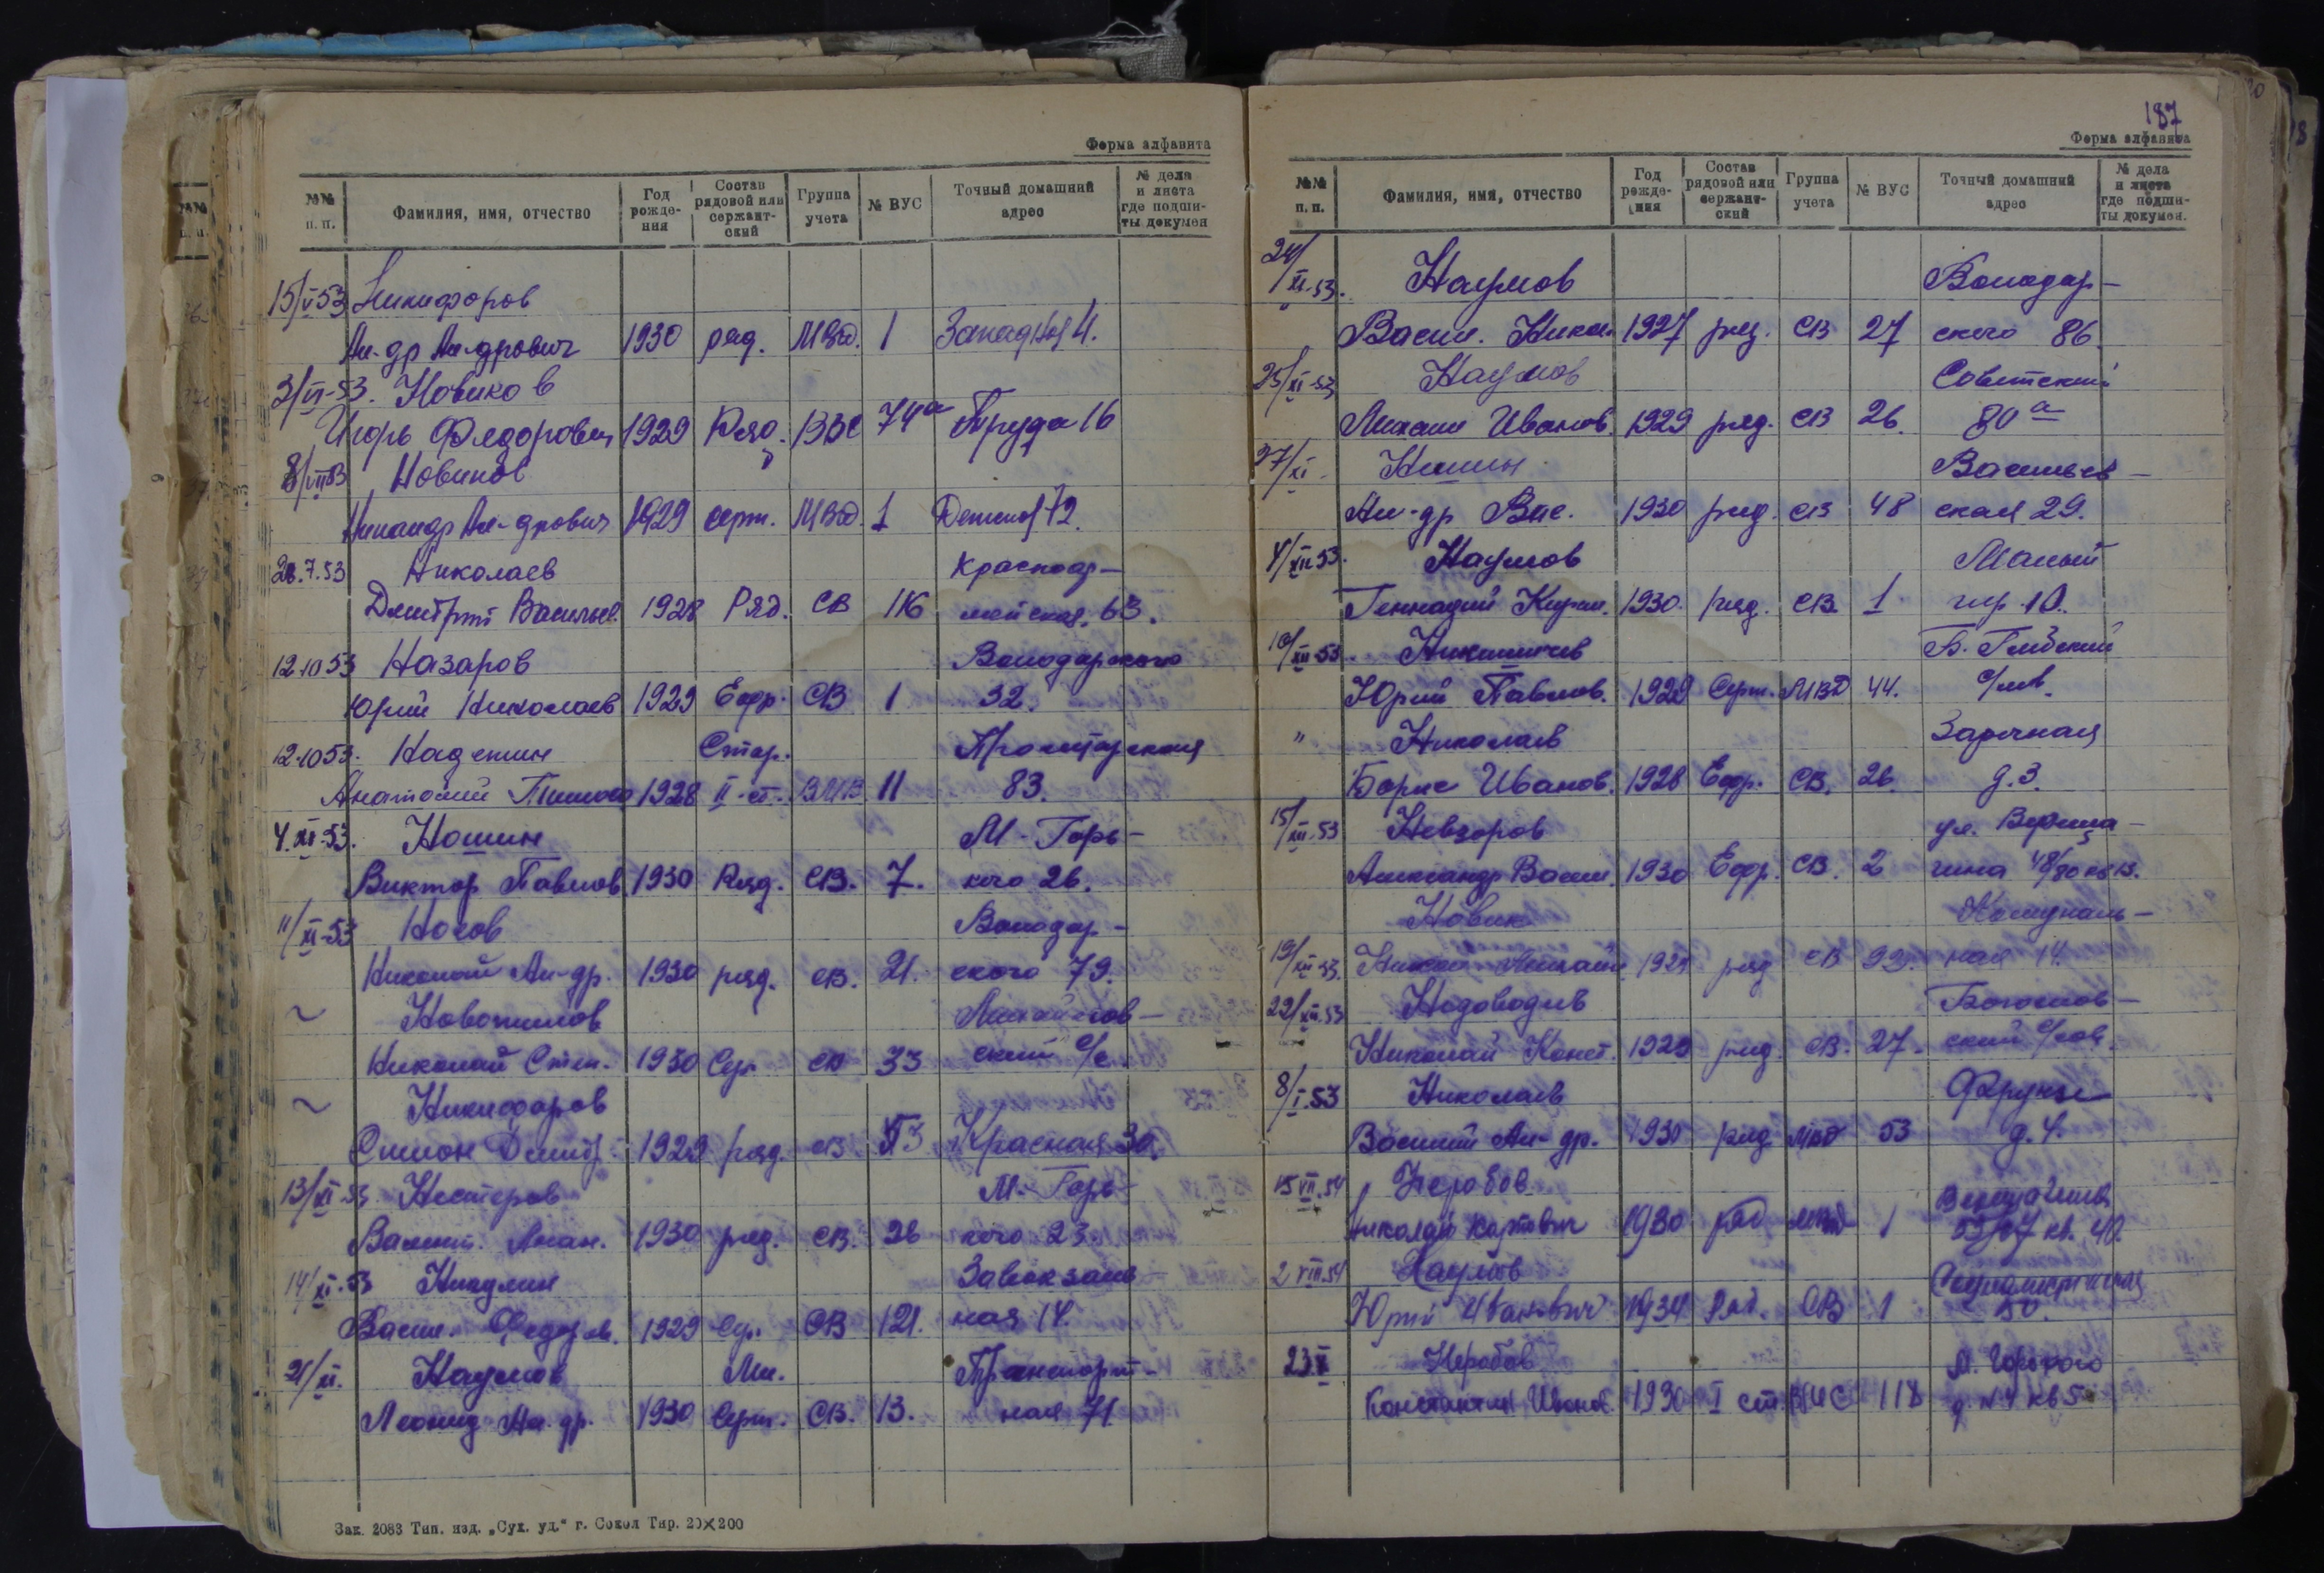 Форма алфавита
№№ п. п. Фамилия, имя, отчество Год рожде-ния Состав рядовой или сержант-ский Группа учета № ВУС Точный домашний адрес № дела и листа где подши-ты докумен
15/V 53 Никифоров
Ал-др Ал-дрович 1930 ряд. МВд. 1 Западная 4.
3/VI-53. Новиков
Игорь Федорович 1929 Ряд. ВВС 74а Труда 16
8/VII 53 Новиков
Никандр Ал-дрович 1929 серж. МВд. 1 72.
28.7.53 Николаев Красноар-
Дмитрий Васильев. 1928 Ряд. СВ 116 мейская. 63.
12.10 53 Назаров Володарского
Юрий Николаев 1929 Ефр. СВ 1 32.
12.10 53. Надежин Стар. Пролетарская
Анатолий 1928 II-ст. ВМВ 11 83.
4.XI-53. Ношин М-Горь-
Виктор Павлов. 1930 Ряд. СВ. 7. кого 26.
11/XI-53 Носов Володар-
Николай Ал-др. 1930 ряд. СВ. 21. ского 79.
~ Новожилов
Николай Степ. 1930 Сер. СВ 33 ский с/с
~ Никифоров
Симон Дмитр. 1929 ряд. СВ. Красная 30.
13/XI-53 Нестеров М-Горь-
1930 ряд. СВ. 26 кого 23.
14/XI-53 Никулин Завокзаль-
Васил. Федоров. 1929 Сер. СВ 121. ная 14.
21/XI. Наумов Мл. Транспорт-
Леонид Ал-др. 1930 Серж. СВ. 13. ная 71
Зак. 2083 Тип. изд. „Сух. уд.“ г. Сокол Тир. 20×200
187
Форма алфавита
№№ п. п. Фамилия, имя, отчество Год рожде-ния Состав рядовой или сержант-ский Группа учета № ВУС Точный домашний адрес № дела и листа где подши-ты докумен.
24/XI-53. Наумов Володар-
Васил. Никол. 1927 ряд. СВ 27 ского 86.
25/XI-53 Наумов Советский
Михаил Иванов. 1929 ряд. СВ 26. 80а
27/XI Васильев-
Ал-др Вас. 1930 ряд. СВ 48 ская 29.
4/XII 53. Наумов Малый
Геннадий Кирил. 1930. ряд. СВ. 1 пер. 10.
10/XII-53.
Юрий Павлов. 1929 Серж. МВД 44. с/сов.
" Николаев Заречная
Борис Иванов. 1928 Ефр. СВ. 26. д. 3.
15/XII-53 Невзоров ул. Вереща-
Александр Васил. 1930 Ефр. СВ. 2 гина
Новик Комуналь-
19/XII-53. ряд СВ 99. ная 14.
22/XII.53 Богослов-
Николай Конст. 1929 ряд. СВ. 27. ский с/сов.
8/I.53 Николаев Фрунзе
Василий Ал-др. 1930 ряд. МВД 53 д. 4.
15 VII.54 Неробов Верещагина
Николай 1930 ряд МВД 1 кв. 40.
2 VIII.54 Наумов Социалистическая
Юрий Иванович 1934 Ряд. СВ 1 50.
23 X Неробов М. Горького
Константин Иванов. 1930 I ст. ВМС 118 д. № 4 кв 5